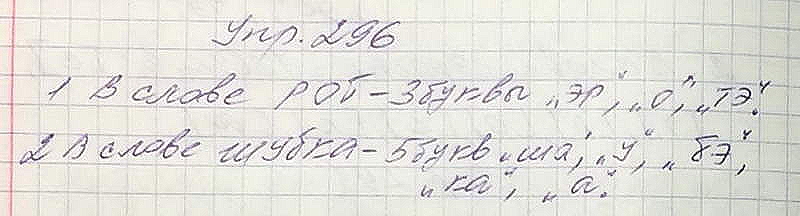 Упр. 296
1 В слове РОТ – 3 буквы „эр“, „о“, „тэ“.
2 В слове шубка – 5 букв „ша“, „у“, „бэ“,
„ка“, „а“.